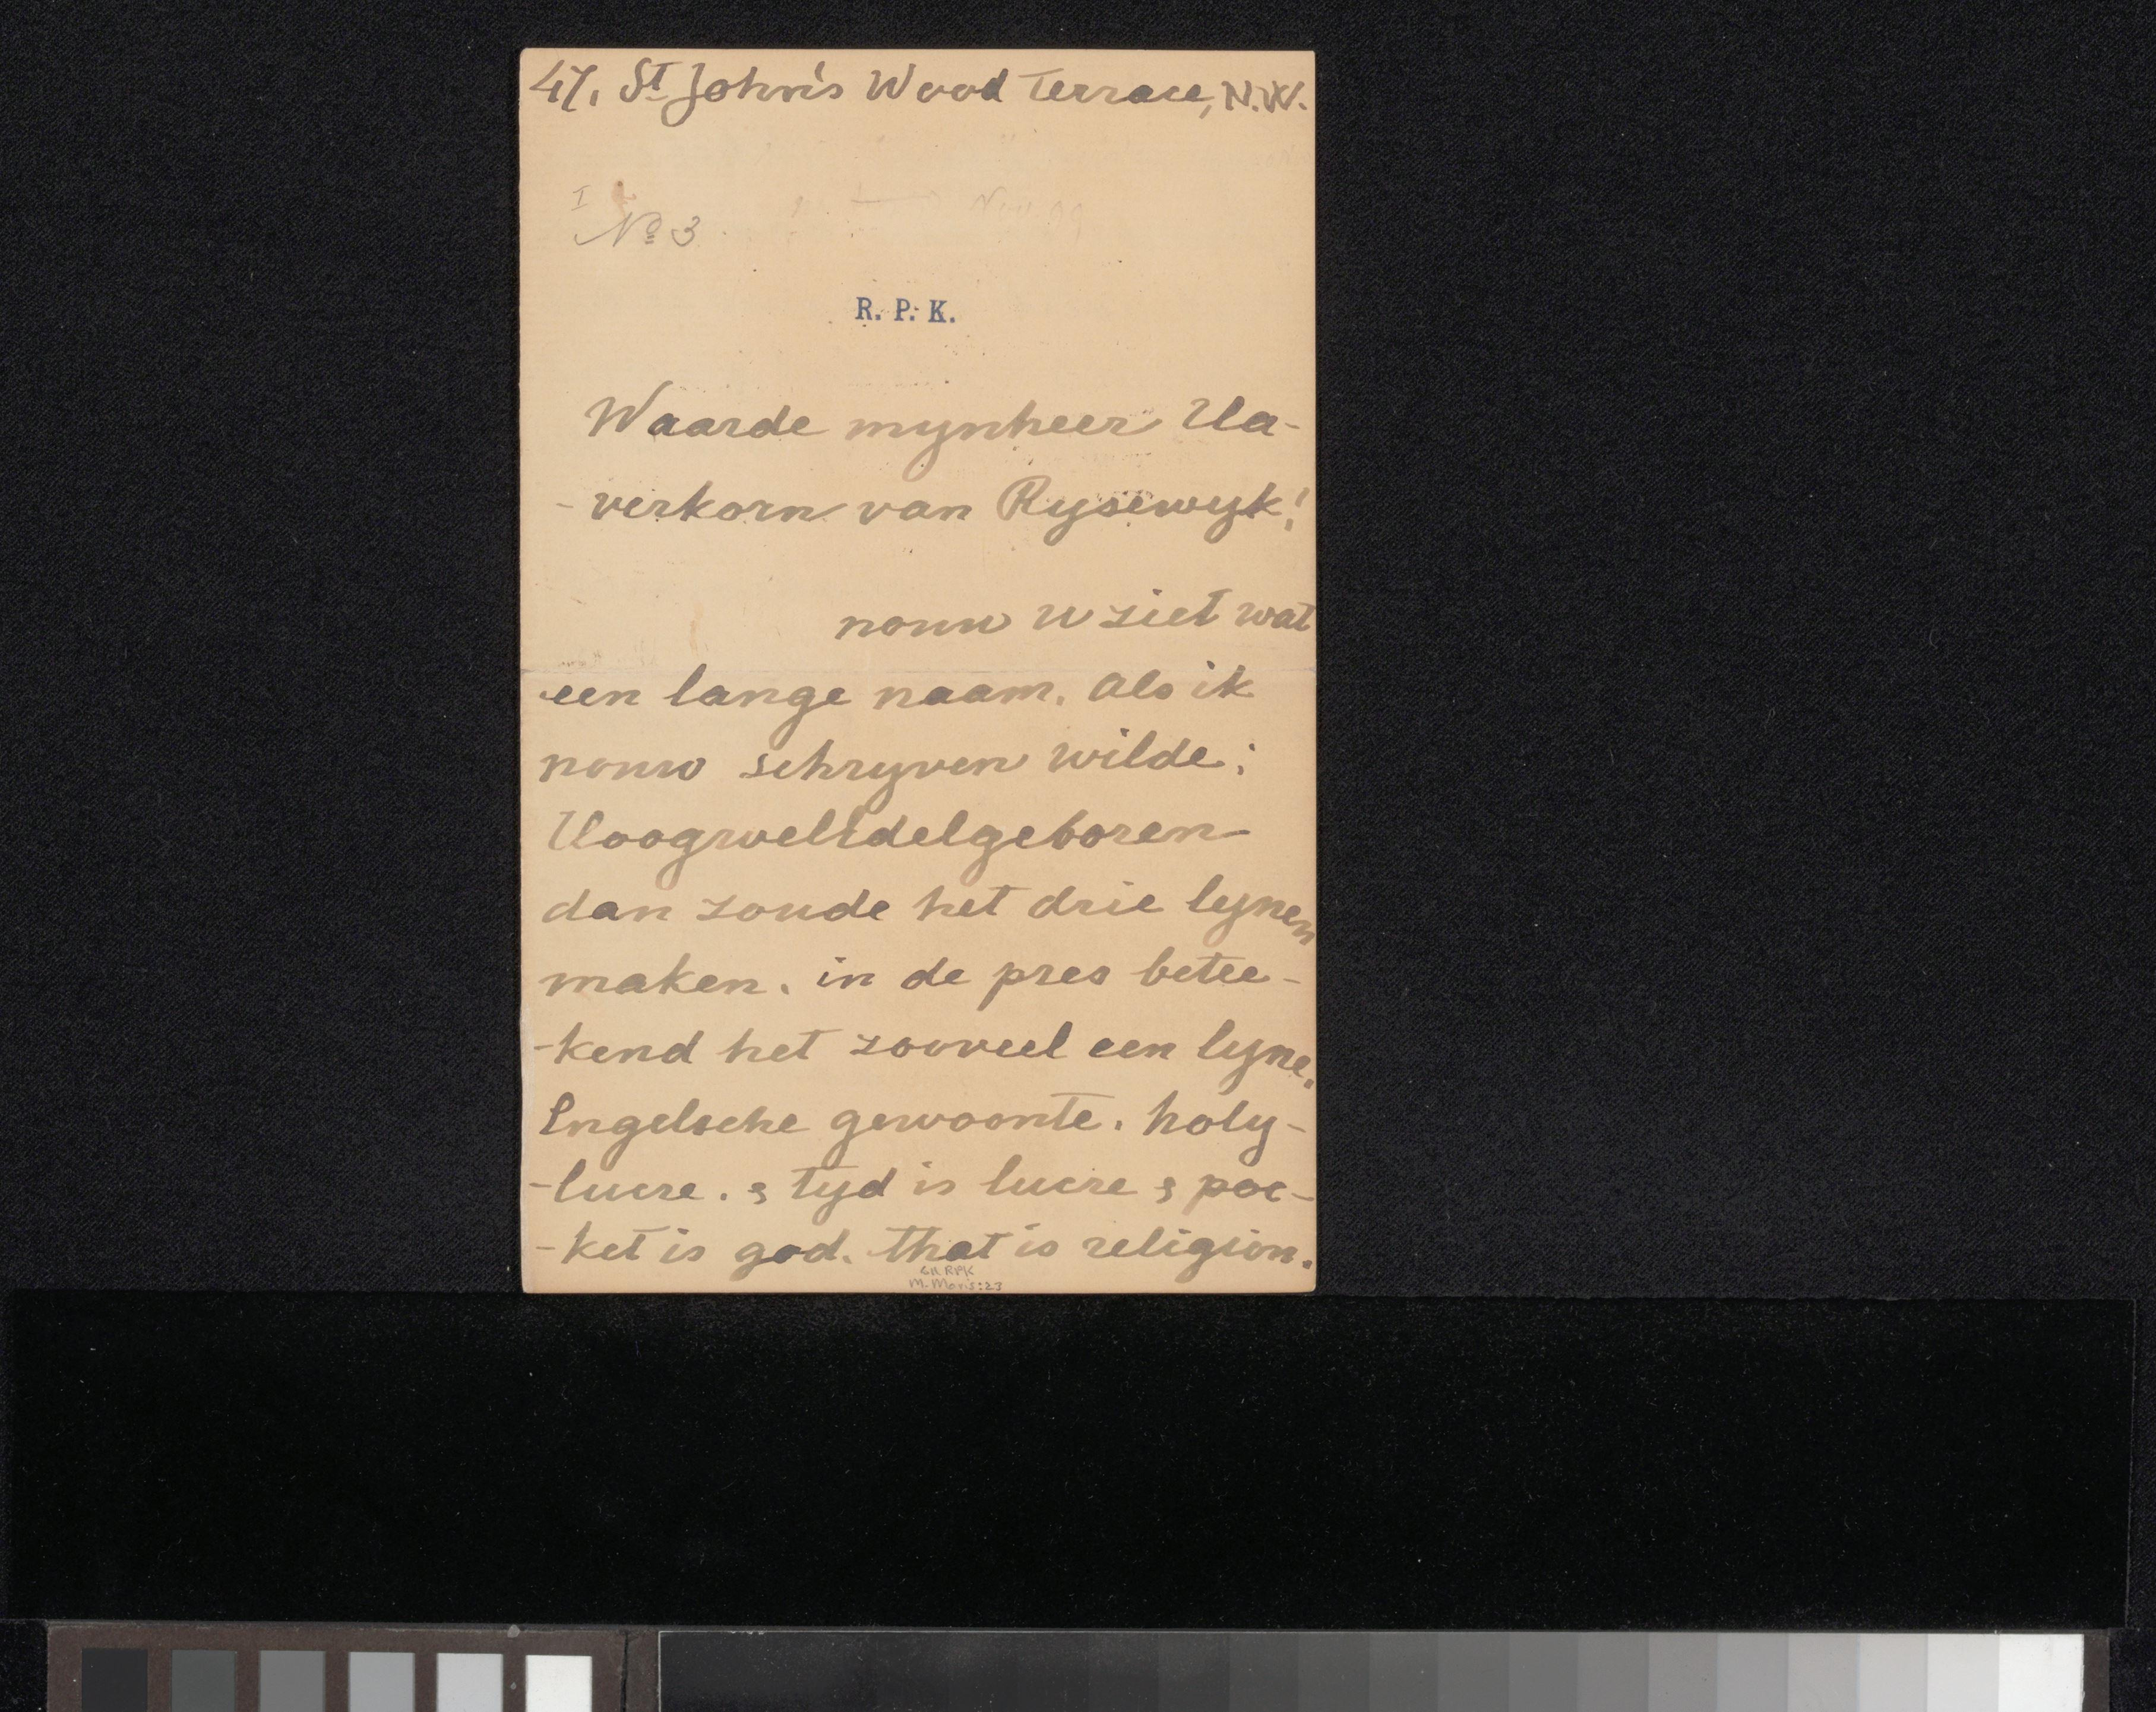 47, St John's Wood Terrace, N.W.
I
No 3
R. P. K.
Waarde mynheer Ha-
-verkorn van Rysewyk!
nouw U ziet wat
een lange naam. Als ik
nouw schryven wilde:
HoogwelEdelgeboren
dan zoude het drie lynen
maken. in de pres betee-
-kend het zooveel een lyne.
Engelsche gewoonte. holy-
-lucre. & tyd is lucre & poc-
-ket is god. that is religion.
GH RPK
M. Maris:23